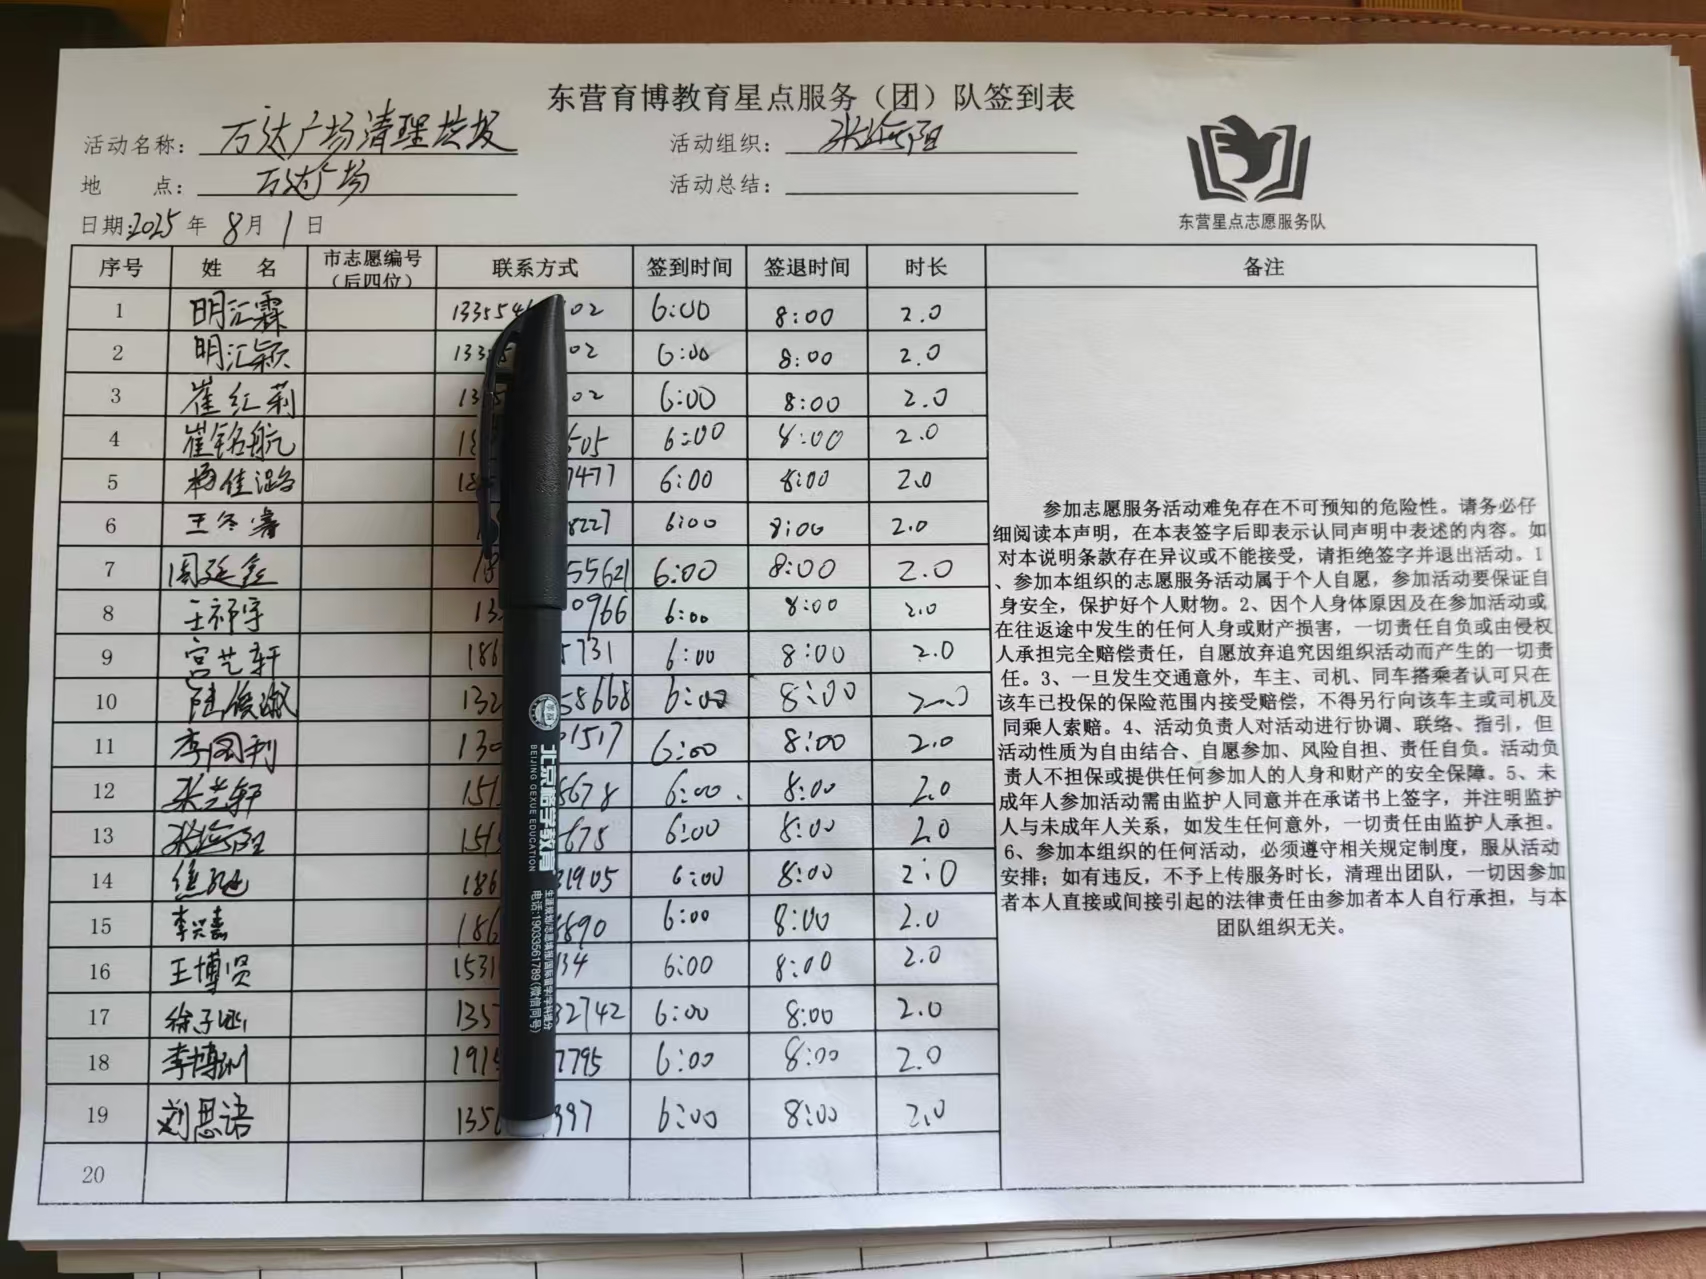 东营育博教育星点服务（团）队签到表
活动名称： 万达广场清理
活动组织：
地 点： 万达广场
活动总结：
日期:2025年 8月 1日
东营星点志愿服务队
序号 姓 名 市志愿编号（后四位） 联系方式 签到时间 签退时间 时长 备注
1 明汇霖 02 6:00 8:00 2.0
2 明汇颖 02 6:00 8:00 2.0
3 崔红莉 02 6:00 8:00 2.0
4 崔铭航 505 6:00 8:00 2.0
5 7477 6:00 8:00 2.0
6 8227 6:00 8:00 2.0
7 周延鑫 55621 6:00 8:00 2.0
8 王祁宇 13 0966 6:00 8:00 2.0
9 宫艺轩 186 5731 6:00 8:00 2.0
10 132 58668 6:00 8:00 2.0
11 李国利 130 01517 6:00 8:00 2.0
12 张艺轩 151 5678 6:00 8:00 2.0
13 675 6:00 8:00 2.0
14 186 31905 6:00 8:00 2:0
15 李兴嘉 186 890 6:00 8:00 2.0
16 王博贤 1531 34 6:00 8:00 2.0
17 徐子 135 32742 6:00 8:00 2.0
18 李博 1915 7795 6:00 8:00 2.0
19 刘思语 135 397 6:00 8:00 2.0
20
参加志愿服务活动难免存在不可预知的危险性。请务必仔
细阅读本声明，在本表签字后即表示认同声明中表述的内容。如
对本说明条款存在异议或不能接受，请拒绝签字并退出活动。1
、参加本组织的志愿服务活动属于个人自愿，参加活动要保证自
身安全，保护好个人财物。2、因个人身体原因及在参加活动或
在往返途中发生的任何人身或财产损害，一切责任自负或由侵权
人承担完全赔偿责任，自愿放弃追究因组织活动而产生的一切责
任。3、一旦发生交通意外，车主、司机、同车搭乘者认可只在
该车已投保的保险范围内接受赔偿，不得另行向该车主或司机及
同乘人索赔。4、活动负责人对活动进行协调、联络、指引，但
活动性质为自由结合、自愿参加、风险自担、责任自负。活动负
责人不担保或提供任何参加人的人身和财产的安全保障。5、未
成年人参加活动需由监护人同意并在承诺书上签字，并注明监护
人与未成年人关系，如发生任何意外，一切责任由监护人承担。
6、参加本组织的任何活动，必须遵守相关规定制度，服从活动
安排；如有违反，不予上传服务时长，清理出团队，一切因参加
者本人直接或间接引起的法律责任由参加者本人自行承担，与本
团队组织无关。
北京格学教育
BEIJING GEXUE EDUCATION
生涯规划/志愿填报/国际留学/学科提分
电话:19033561789(微信同号)